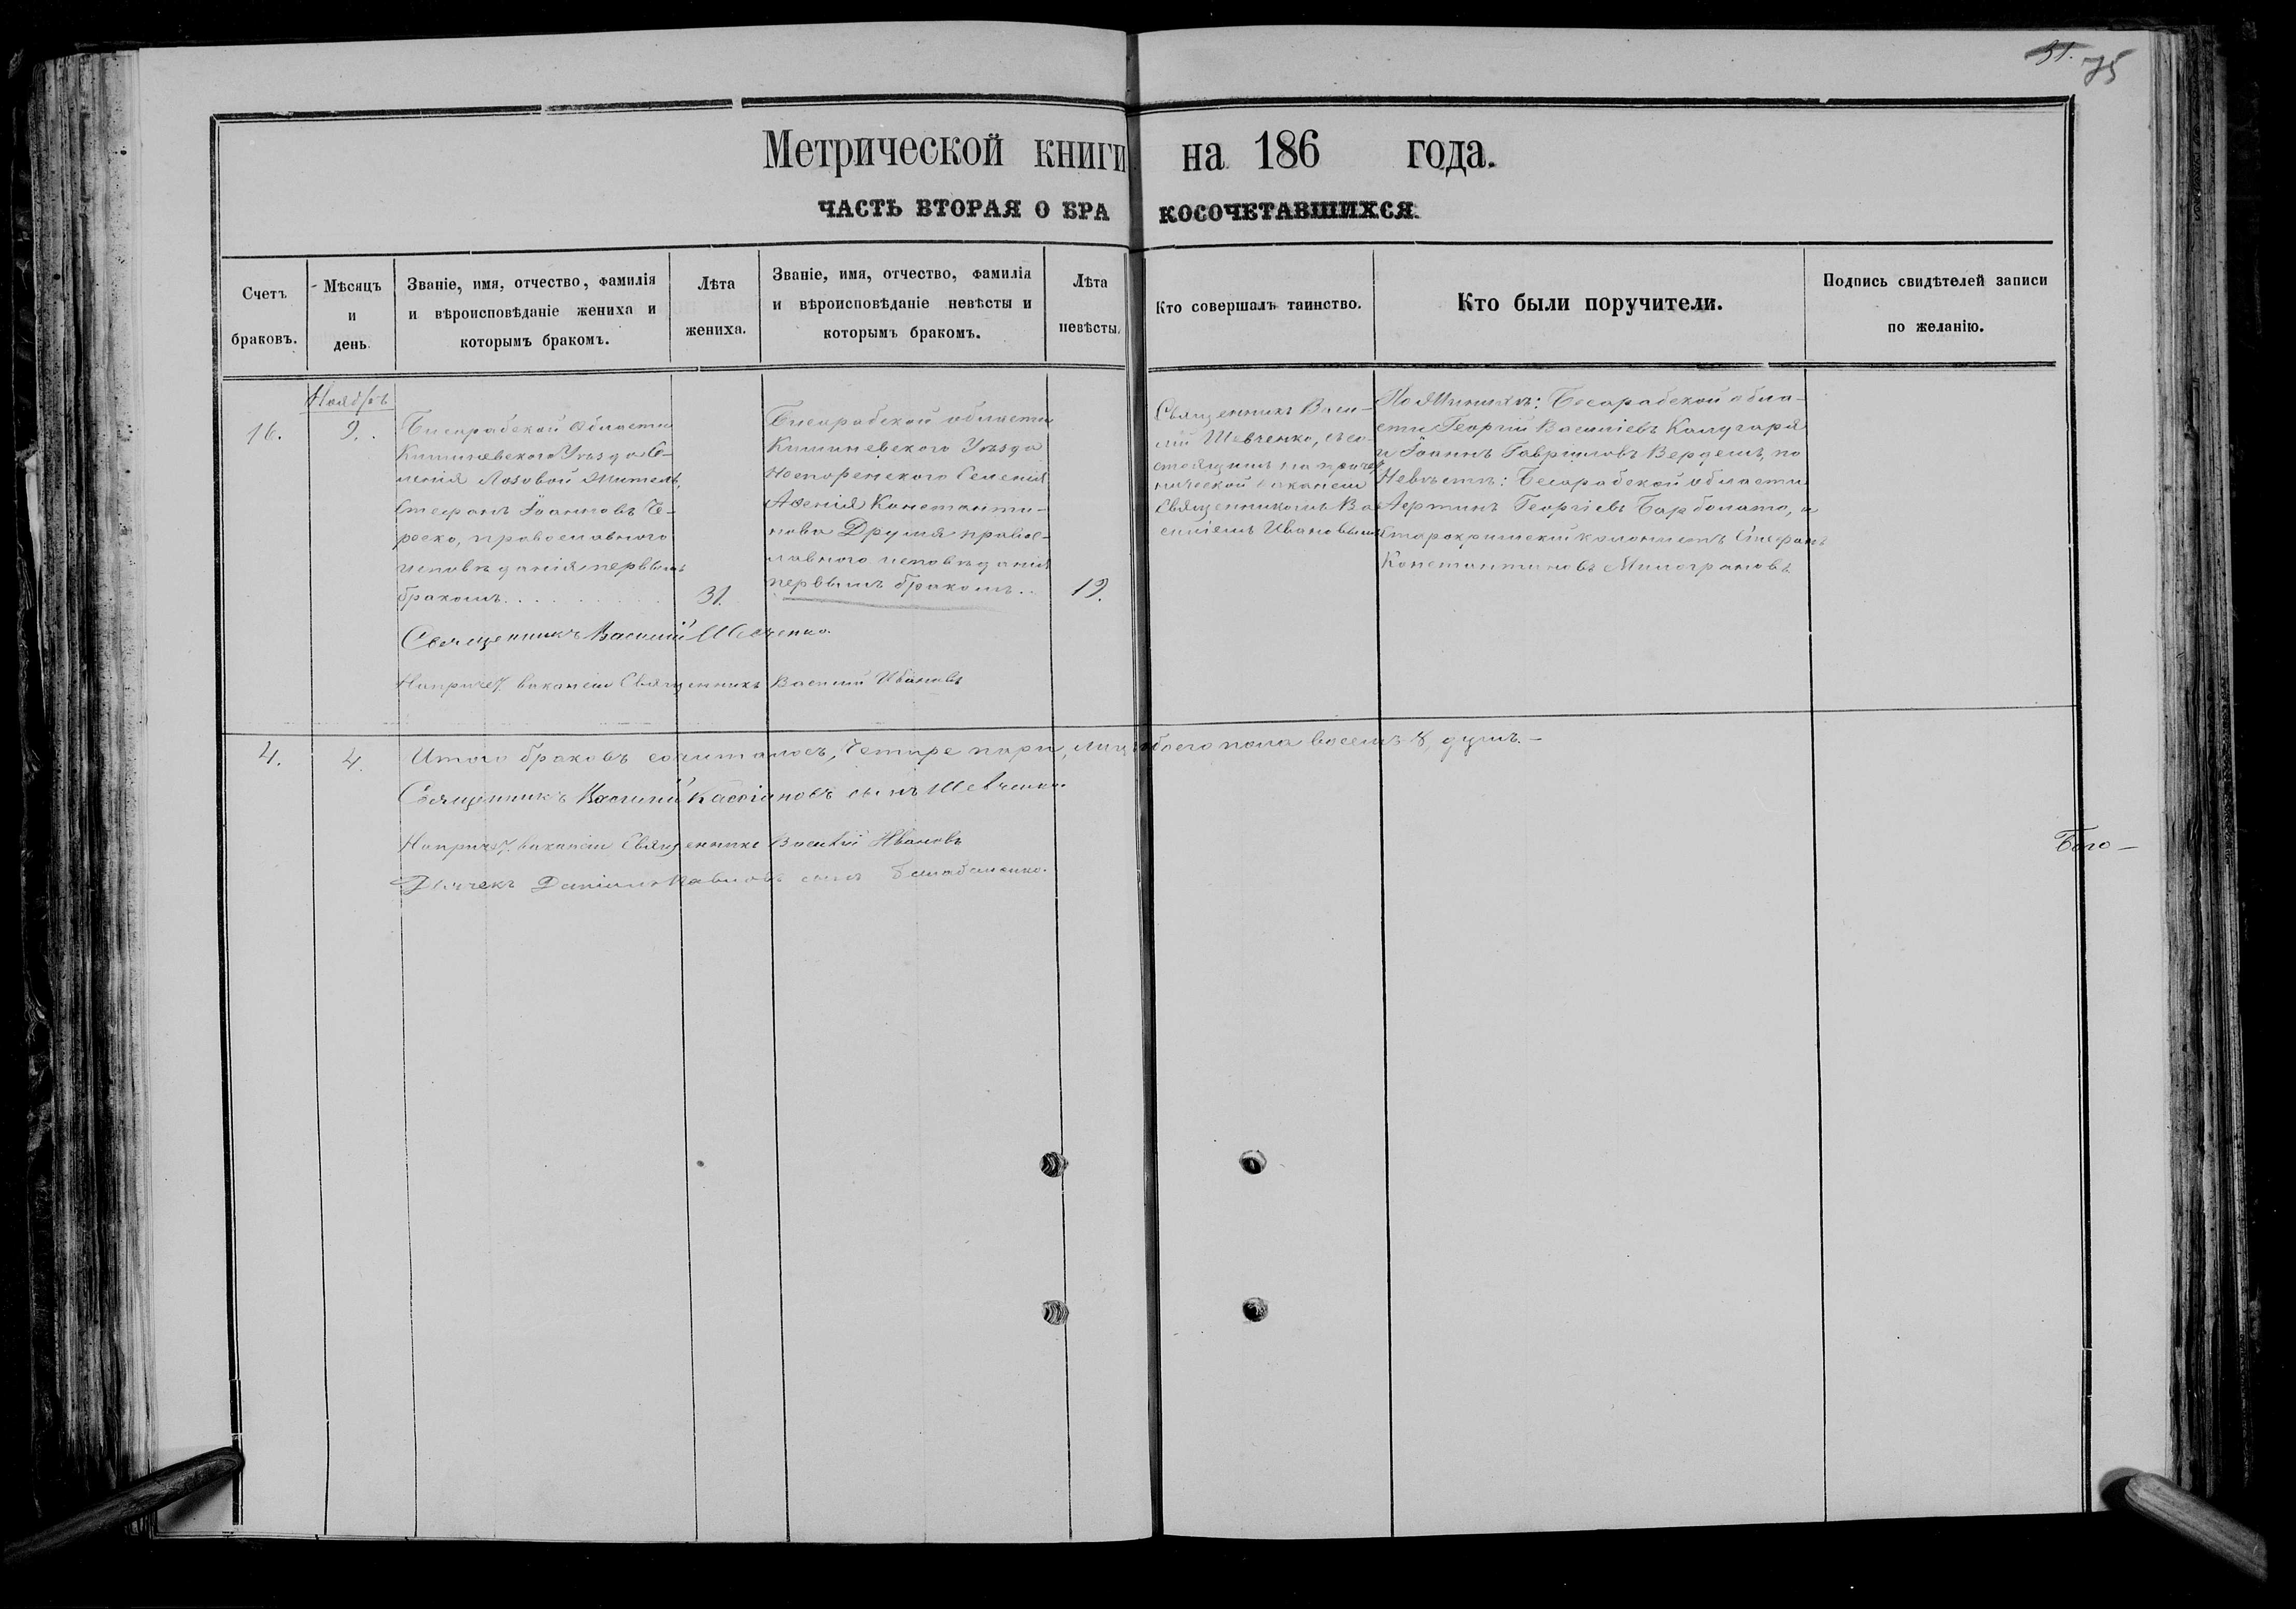 31. 75
Метрической книги на 186 года.
ЧАСТЬ ВТОРАЯ О БРАКОСОЧЕТАВШИХСЯ.
Счетъ
браковъ.
Мѣсяцъ
и
день.
Званіе, имя, отчество, фамилія
и вѣроисповѣданіе жениха и
которымъ бракомъ.
Лѣта
жениха.
Званіе, имя, отчество, фамилія
и вѣроисповѣданіе невѣсты и
которымъ бракомъ.
Лѣта
невѣсты.
Кто совершалъ таинство.
Кто были поручители.
Подпись свидѣтелей записи
по желанію.
16.
Ноябрь
9.
Бесарабской Области
Кишиневского Уѣзда Се-
ленія Лозовой Житель,
Стефанъ Іоанновъ
православного
исповѣданія первымъ
бракомъ
31.
Бесарабской области
Кишиневского Уѣзда
Неспоренского Селенія
Аѳенія Константи-
нова Друмя правос-
лавного исповѣданія
первымъ бракомъ..
19.
Священникъ Васи-
лій Шевченко, съ со-
стоящимъ на приче-
тнической вакансіи
Священникомъ Ва-
силіемъ Ивановымъ
По Женихѣ: Бесарабской обла-
сти Георгій Василіевъ Калугаря
и Іоаннъ Гавриловъ Вердешъ, по
Невѣстѣ: Бесарабской области
Георгіевъ Барболато, и
Старокримскій колонистъ Стефанъ
Константиновъ Милограновъ
Священникъ Василій Шевченко.
На причет. вакансіи Священникъ Василій Ивановъ
4.
4.
Итого браковъ сочиталось, четыре пари, лицъ обоего пола восемь 8, душъ. —
Священникъ Василій Касіановъ сынъ Шевченко
На причет. вакансіи Священникъ Василій Ивановъ
Даніилъ Павловъ сынъ Балабаненко.
Бого—